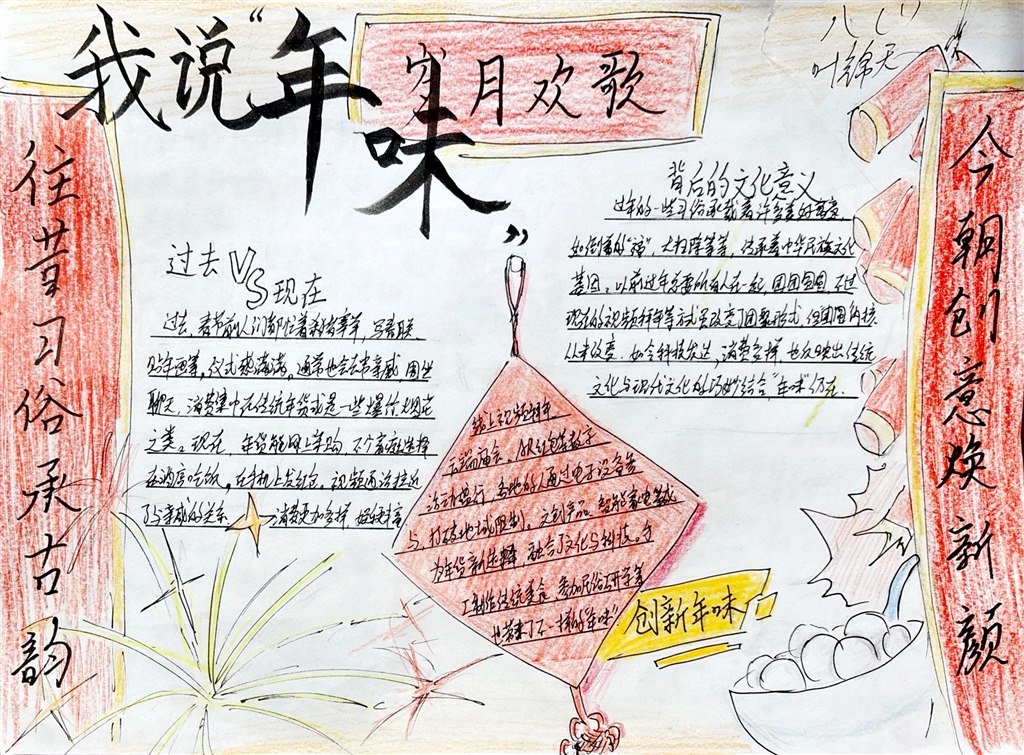 我说“年味”
岁月欢歌
八(1)
叶锦天
往昔习俗承古韵
今朝创意焕新颜
过去VS现在
过去,春节前人们都忙着剁肉蒸羊,写春联
贴年画等,仪式感满满。通常也会去串亲戚,围坐
聊天,消费集中在传统年货或是一些爆竹烟花
之类。现在,年货能网上采购,不少家庭选择
在酒店吃饭,在手机上发红包,视频通话拉近
了与亲戚的关系 消费更加多样
背后的文化意义
过年的一些习俗承载着许多美好寓意
如倒着的“福”,大扫除等等,传承着中华民族文化
基因。以前过年总要所有人在一起,团团圆圆,不过
现在的视频拜年等方式虽改变了团聚形式,但团圆的核
从未改变.如今科技发达,消费多样,也反映出传统
文化与现代文化的巧妙结合“年味”仍在.
线上视频拜年
云端庙会、AR红包等数字
活动盛行 各地的人通过电子设备参
与,打破地域限制。文创产品、智能家电等成
为年货新选择,融合了文化与科技。手
工制作传统美食 参加民俗研学等
创新年味